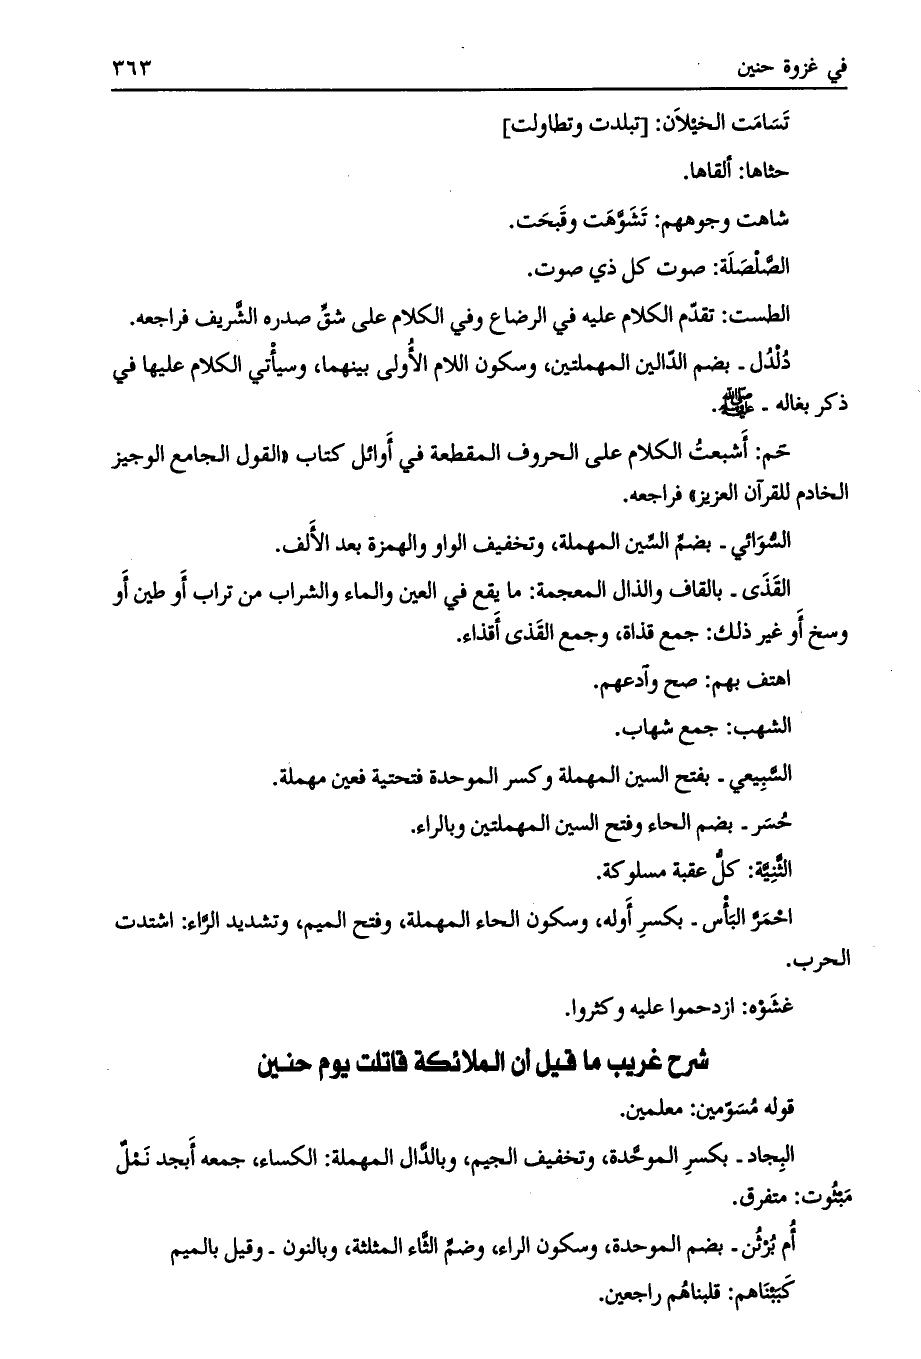 في غزوة حنين ٣٦٣
تَسَامَت الخيْلاَن: [تبلدت وتطاولت]
حثاها: ألقاها.
شاهت وجوههم: تَشَوَّهَت وقَبحَت.
الصَّلْصَلَة: صوت كل ذي صوت.
الطست: تقدّم الكلام عليه في الرضاع وفي الكلام على شقِّ صدره الشَّريف فراجعه.
دُلْدُل ـ بضم الدّالين المهملتين، وسكون اللام الأُولى بينهما، وسيأْتي الكلام عليها في
ذكر بغاله ـ ﷺ.
حَم: أَشبعتُ الكلام على الحروف المقطعة في أَوائل كتاب «القول الجامع الوجيز
الخادم للقرآن العزيز» فراجعه.
السُّوَائي ـ بضمِّ السِّين المهملة، وتخفيف الواو والهمزة بعد الأَلف.
القَذَى ـ بالقاف والذال المعجمة: ما يقع في العين والماء والشراب من تراب أَو طين أَو
وسخ أَو غير ذلك: جمع قذاة، وجمع القَذى أَقذاء.
اهتف بهم: صح وآدعهم.
الشهب: جمع شهاب.
السَّبِيعي ـ بفتح السين المهملة وكسر الموحدة فتحتية فعين مهملة.
حُسَر ـ بضم الحاء وفتح السين المهملتين وبالراء.
الثَّنِيَّة: كلُّ عقبة مسلوكة.
احْمَرَّ البَأْس ـ بكسرِ أَوله، وسكون الحاء المهملة، وفتح الميم، وتشديد الرَّاء: اشتدت
الحرب.
غشَوْه: ازدحموا عليه وكثروا.
شرح غريب ما قيل أن الملائكة قاتلت يوم حنين
قوله مُسَوّمين: معلمين.
البِجاد ـ بكسرِ الموحَّدة، وتخفيف الجيم، وبالدَّال المهملة: الكساء، جمعه أَبجد نَمْلٌ
مَبْثُوت: متفرق.
أُم بُرْثُن ـ بضم الموحدة، وسكون الراء، وضمِّ الثَّاء المثلثة، وبالنون ـ وقيل بالميم
كَبَبْنَاهم: قلبناهُم راجعين.